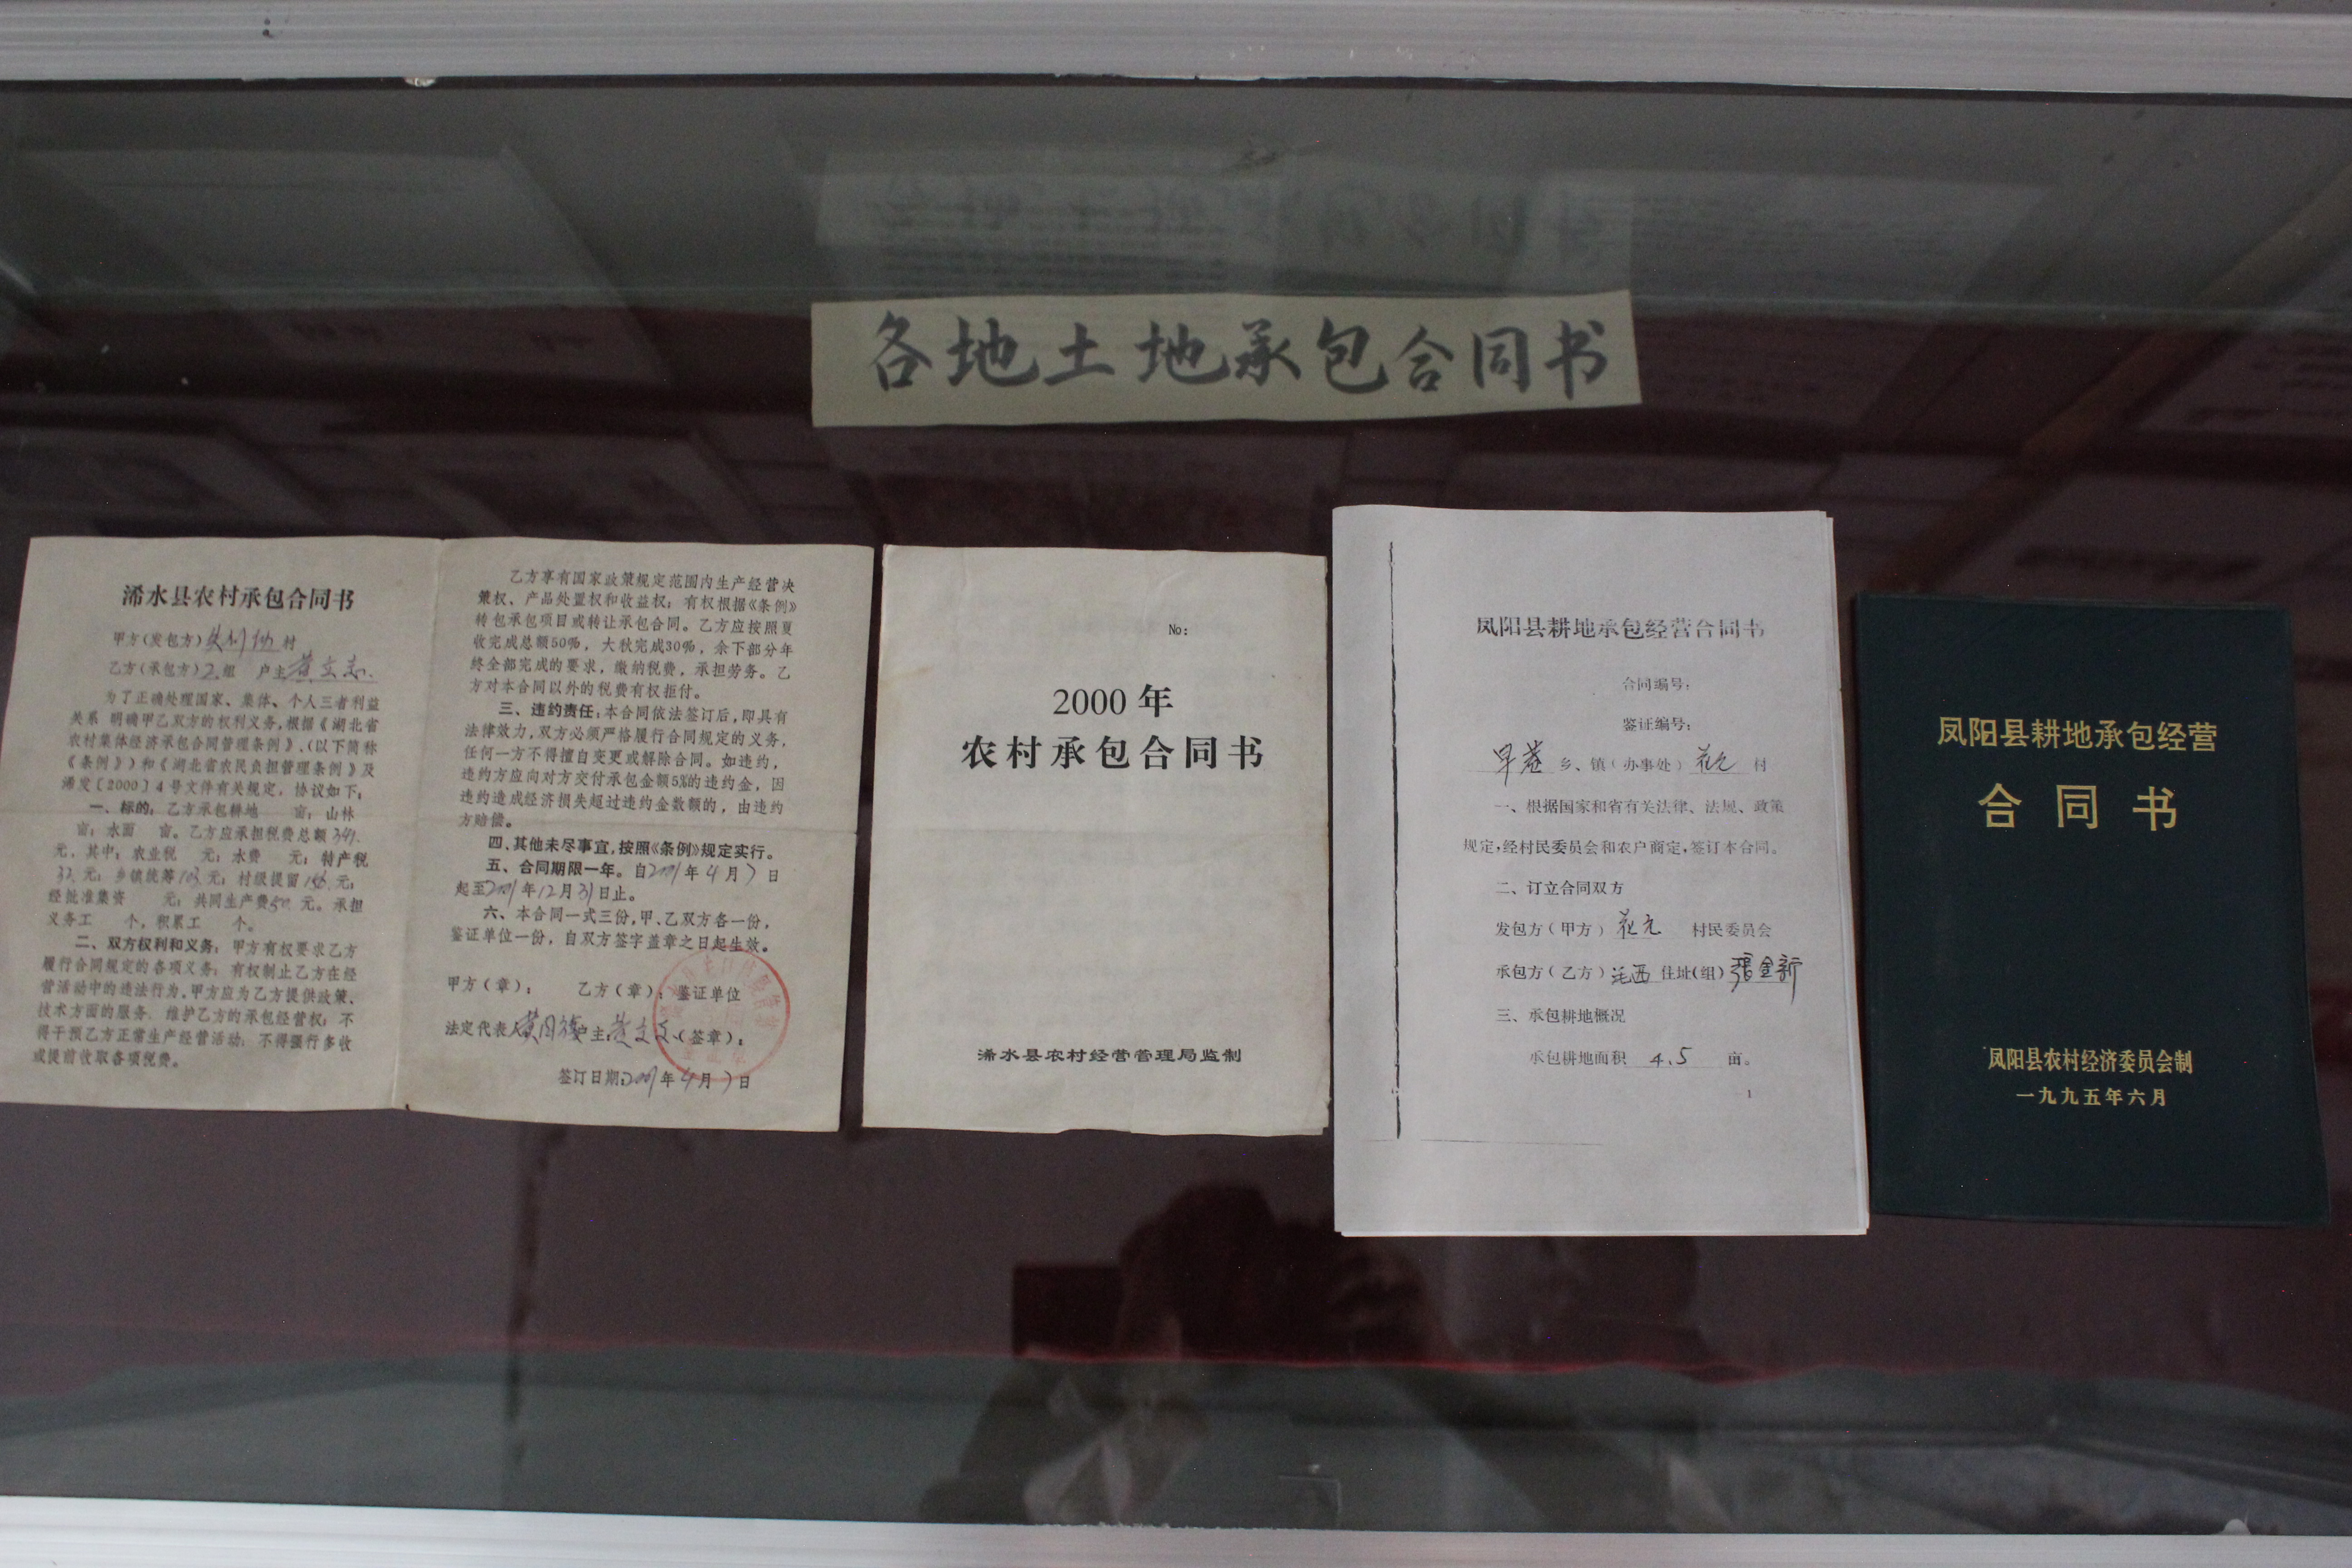 各地土地承包合同书
浠水县农村承包合同书
甲方(发包方) 村
乙方(承包方)2组 户主黄文志
为了正确处理国家、集体、个人三者利益
关系 明确甲乙双方的权利义务,根据《湖北省
农村集体经济承包合同管理条例》、(以下简称
《条例》)和《湖北省农民负担管理条例》及
浠发〔2000〕4号文件有关规定,协议如下:
一、标的:乙方承包耕地 亩;山林
亩;水面 亩。乙方应承担税费总额
元,其中:农业税 元;水费 元;特产税
32元;乡镇统筹103元;村级提留 元;
经批准集资 元;共同生产费50元。承担
义务工 个,积累工 个。
二、双方权利和义务:甲方有权要求乙方
履行合同规定的各项义务;有权制止乙方在经
营活动中的违法行为。甲方应为乙方提供政策、
技术方面的服务,维护乙方的承包经营权;不
得干预乙方正常生产经营活动;不得强行多收
或提前收取各项税费。
乙方享有国家政策规定范围内生产经营决
策权、产品处置权和收益权;有权根据《条例》
转包承包项目或转让承包合同。乙方应按照夏
收完成总额50%,大秋完成30%,余下部分年
终全部完成的要求,缴纳税费,承担劳务。乙
方对本合同以外的税费有权拒付。
三、违约责任:本合同依法签订后,即具有
法律效力,双方必须严格履行合同规定的义务,
任何一方不得擅自变更或解除合同。如违约,
违约方应向对方交付承包金额5%的违约金,因
违约造成经济损失超过违约金数额的,由违约
方赔偿。
四、其他未尽事宜,按照《条例》规定实行。
五、合同期限一年。自2001年4月7日
起至2001年12月31日止。
六、本合同一式三份,甲、乙双方各一份,
鉴证单位一份,自双方签字盖章之日起生效。
甲方(章): 乙方(章): 鉴证单位
法定代表人 户主: (签章):
签订日期:2001年4月7日
No:
2000年
农村承包合同书
浠水县农村经营管理局监制
凤阳县耕地承包经营合同书
合同编号:
鉴证编号:
早庵 乡、镇(办事处) 花元 村
一、根据国家和省有关法律、法规、政策
规定,经村民委员会和农户商定,签订本合同。
二、订立合同双方
发包方(甲方) 花元 村民委员会
承包方(乙方) 住址(组) 張金新
三、承包耕地概况
承包耕地面积 4.5 亩。
1
凤阳县耕地承包经营
合同书
凤阳县农村经济委员会制
一九九五年六月